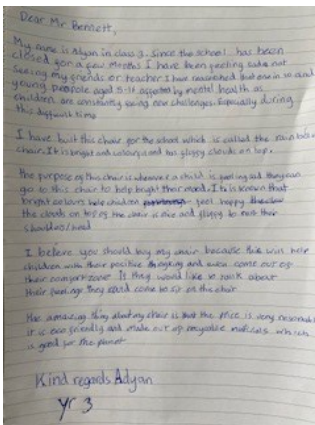 Dear Mr Bennett,
My name is Adyan in class 3. Since the school has been
closed for a few months I have been feeling sad not
seeing my friends or teacher I have researched that one in and
young people aged 5-16 affected by mental health as
children are constantly facing new challenges. Especially during
this difficult time
I have built this chair for the school which is called the rainbow
chair. It is bright and colourful and has fluffy clouds on top.
the purpose of this chair is whenever a child is feeling sad they can
go to this chair to help bright their mood. It is known that
bright colours help children feel happy
the clouds on top of the chair is nice and fluffy to rest their
shoulder/head
I believe you should buy my chair because this will help
children with their positive thinking and even come out of
their comfort zone If they would like to talk about
their feelings they could come to sit on this chair
amazing thing about my chair is that the price is very reasonable
it is eco friendly and made out of recycable materials which
is good for the planet
Kind regards Adyan
yr 3